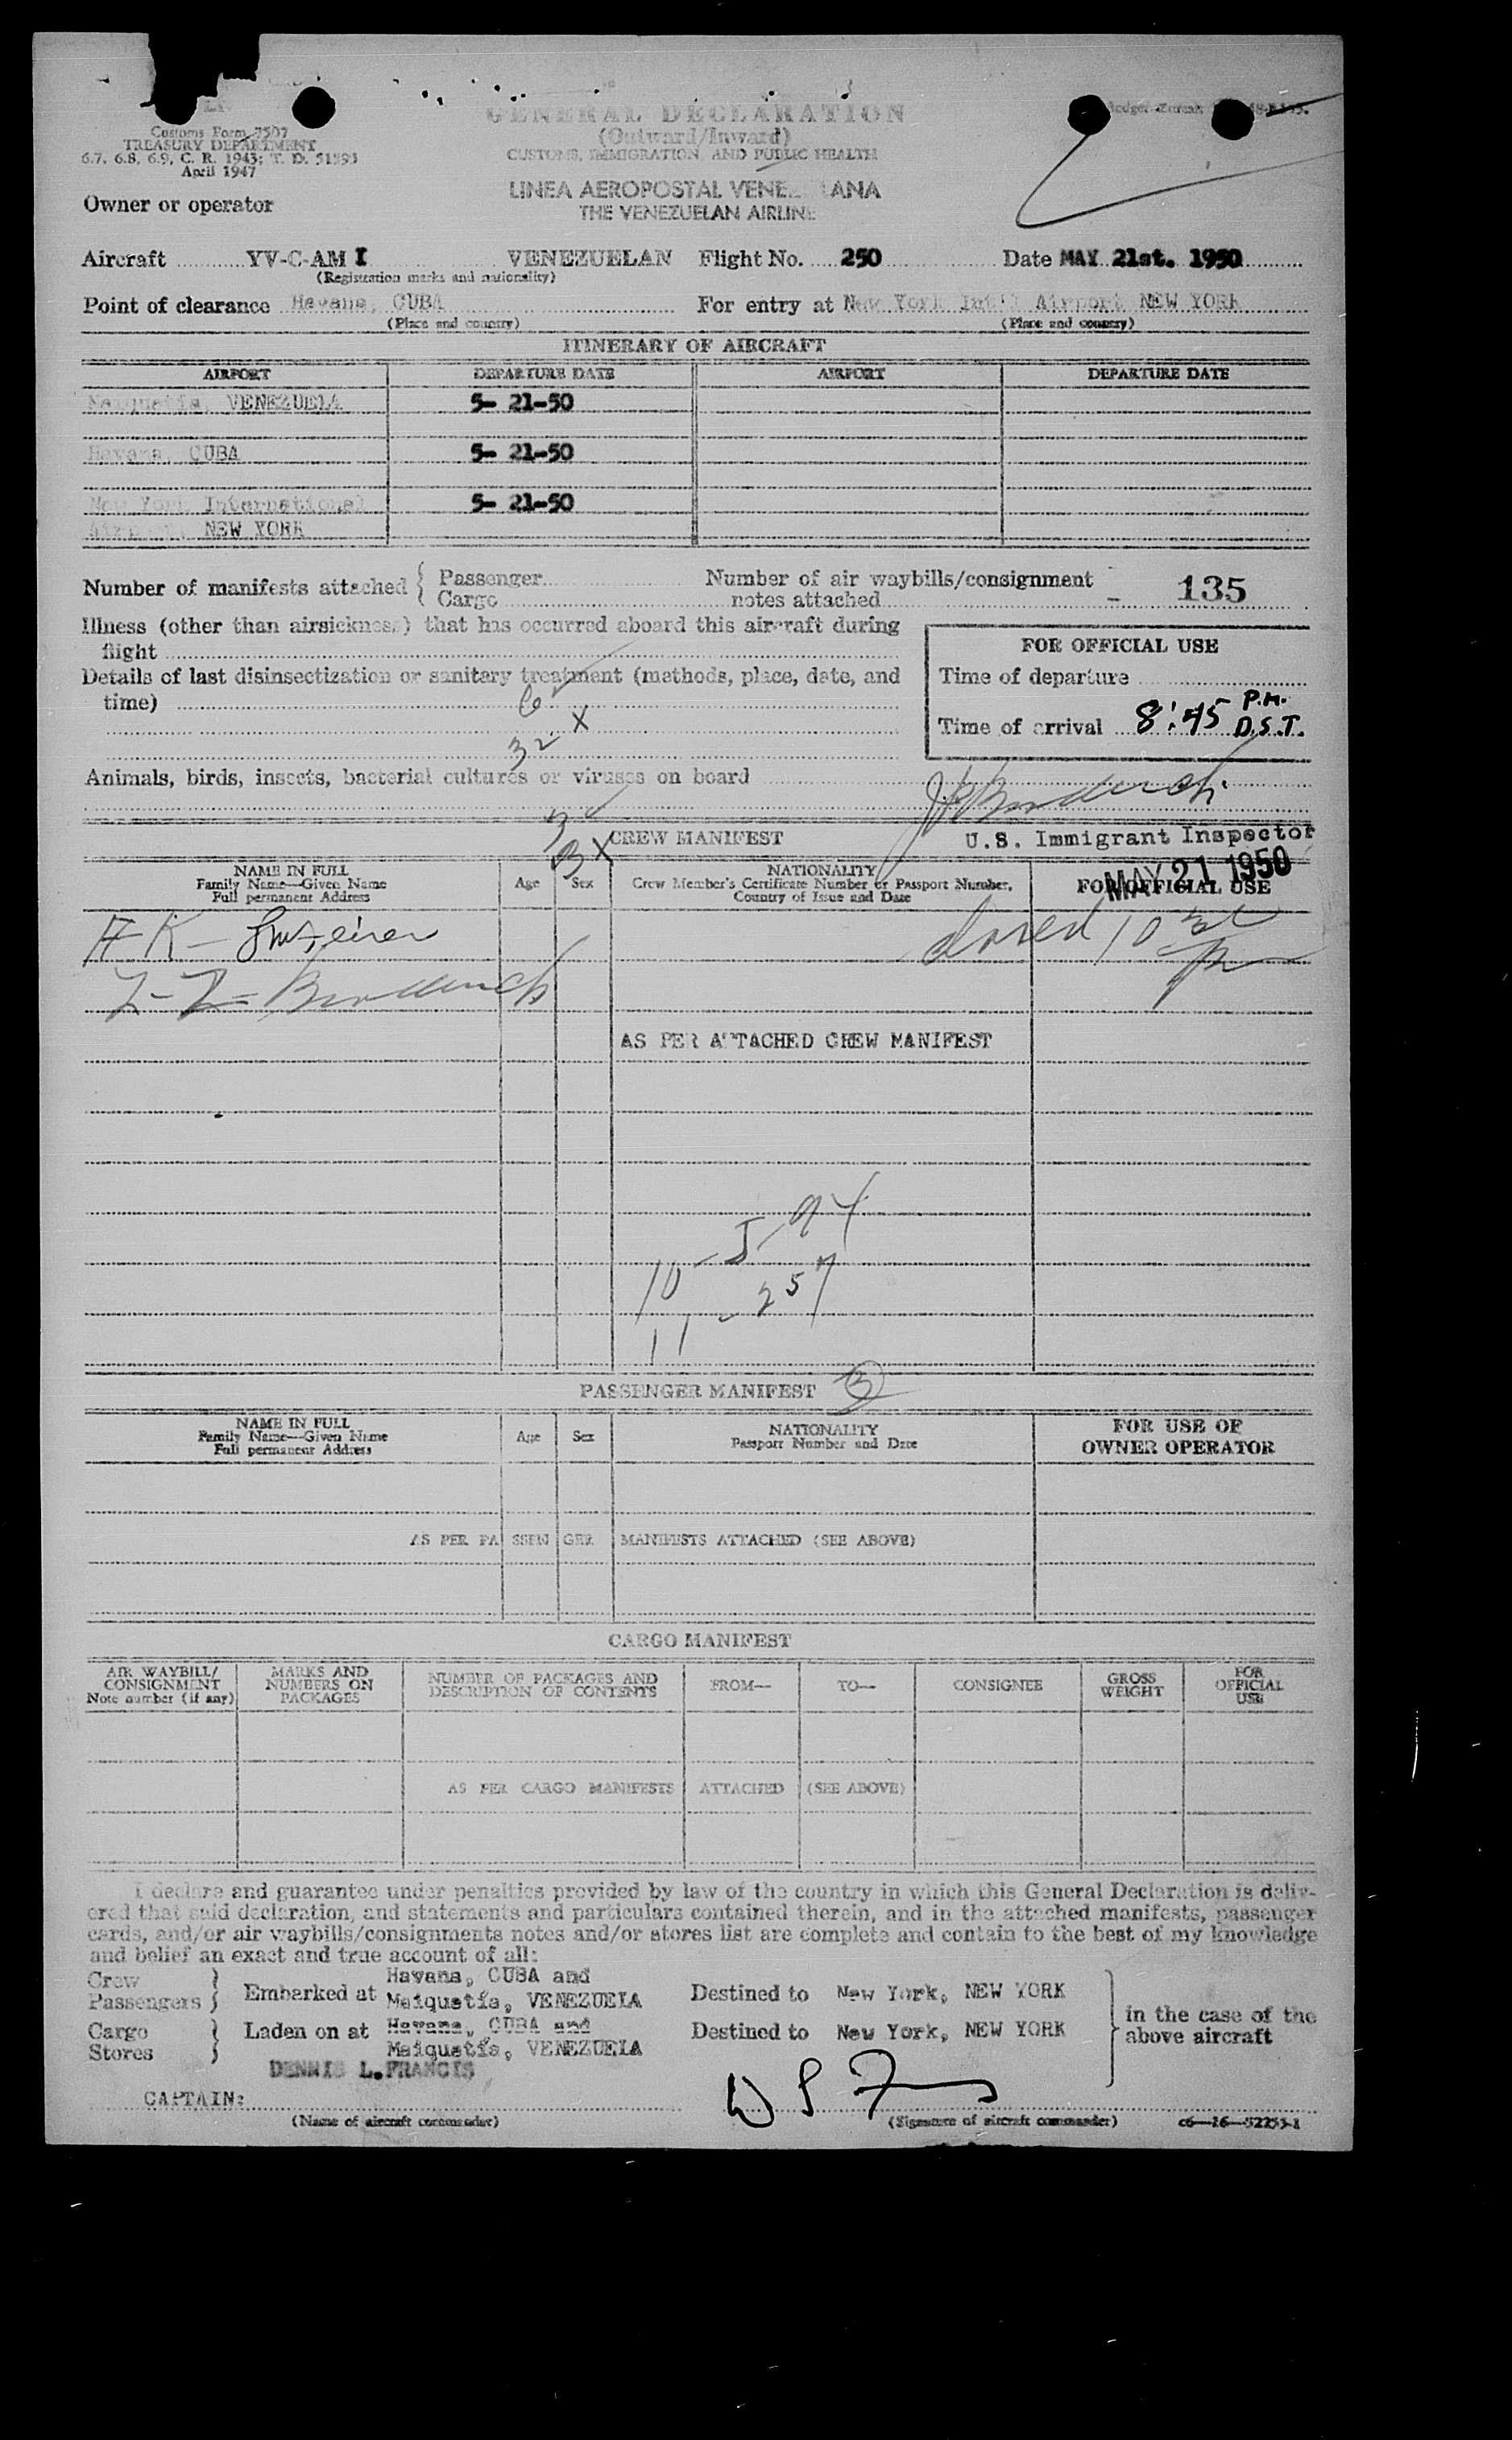 GENERAL DECLARATION
(Outward/Inward)
CUSTOMS, IMMIGRATION, AND PUBLIC HEALTH
Customs Form 7507
TREASURY DEPARTMENT
6.7, 6.8, 6.9, C. R. 1943; T. D. 51593
April 1947
LINEA AEROPOSTAL VENEZ ANA
THE VENEZUELAN AIRLINE
Owner or operator
Aircraft YV-C-AM I VENEZUELAN Flight No. 250 Date MAY 21st. 1950
(Registration marks and nationality)
Point of clearance Havana, CUBA For entry at New York Int'l Airport NEW YORK
(Place and country) (Place and country)
ITINERARY OF AIRCRAFT
AIRPORT DEPARTURE DATE AIRPORT DEPARTURE DATE
Maiquetia, VENEZUELA 5- 21-50
Havana, CUBA 5- 21-50
New York International 5- 21-50
Airport, NEW YORK
Number of manifests attached { Passenger Number of air waybills/consignment
Cargo notes attached - 135
Illness (other than airsickness) that has occurred aboard this aircraft during
flight
Details of last disinsectization or sanitary treatment (methods, place, date, and
time)
FOR OFFICIAL USE
Time of departure
Time of arrival 8:45 P.M. D.S.T.
6
X
32
Animals, birds, insects, bacterial cultures or viruses on board
3
3 X
CREW MANIFEST
U.S. Immigrant Inspector
MAY 21 1950
NAME IN FULL
Family Name—Given Name
Full permanent Address
Age Sex
NATIONALITY
Crew Member's Certificate Number or Passport Number,
Country of Issue and Date
FOR OFFICIAL USE
AS PER ATTACHED CREW MANIFEST
10 - 5-94
11 - 257
PASSENGER MANIFEST 3
NAME IN FULL
Family Name—Given Name
Full permanent Address
Age Sex
NATIONALITY
Passport Number and Date
FOR USE OF
OWNER OPERATOR
AS PER PA SSEN GER MANIFESTS ATTACHED (SEE ABOVE)
CARGO MANIFEST
AIR WAYBILL/
CONSIGNMENT
Note number (if any)
MARKS AND
NUMBERS ON
PACKAGES
NUMBER OF PACKAGES AND
DESCRIPTION OF CONTENTS
FROM—
TO—
CONSIGNEE
GROSS
WEIGHT
FOR
OFFICIAL
USE
AS PER CARGO MANIFESTS ATTACHED (SEE ABOVE)
I declare and guarantee under penalties provided by law of the country in which this General Declaration is deliv-
ered that said declaration, and statements and particulars contained therein, and in the attached manifests, passenger
cards, and/or air waybills/consignments notes and/or stores list are complete and contain to the best of my knowledge
and belief an exact and true account of all:
Crew
Passengers } Embarked at Havana, CUBA and
Maiquetía, VENEZUELA Destined to New York, NEW YORK
Cargo
Stores } Laden on at Havana, CUBA and
Maiquetía, VENEZUELA Destined to New York, NEW YORK
in the case of the
above aircraft
DENNIS L. FRANCIS
CAPTAIN:
(Name of aircraft commander) (Signature of aircraft commander) c6—16—52253-1